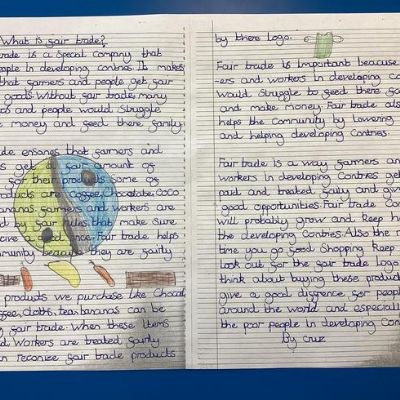 What is fair trade?
trade is a Special Company that
people in developing contries. It makes
that farmers and people get fair
goods. Without fair trade, many
and people would Struggle
money and feed there family.
ensores that farmers and
amount of
there products. Some of
products are coffee, cocolate, coco
bananas. farmers and workers are
by fair rules that make sure
Fair trade helps
they are fairly
products we purchase like Chocol
cloths, tea, bananas can be
fair trade. When these items
and Workers are treated fairly
reconize fair trade products
by there logo.
Fair trade is important because
-ers and workers in developing co
would Struggle to feed there fam
and make money. Fair trade also
helps the Community by lowering
and helping developing Contries.
Fair trade is a way farmers an
workers in developing Contries get
paid and treated fairly and give
good opportunities. Fair trade Con
will probably grow and keep he
the developing Contries. Also the n
time you go Good Shopping keep
look out for the fair trade logo
think about buying these product
give a good diffrence for people
around the world and especiall
the poor people in developing Con
By Cruz